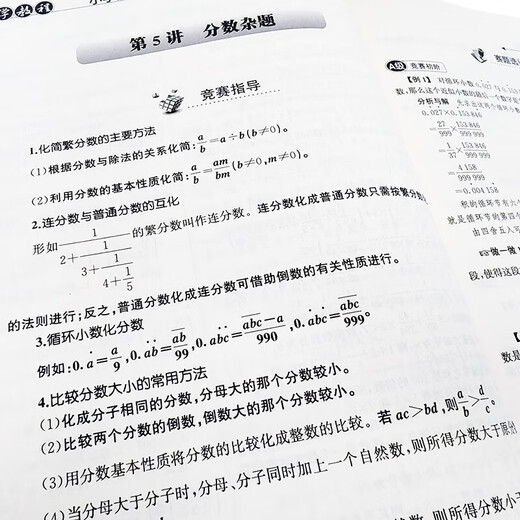 学教程
第5讲 分数杂题
竞赛指导
1.化简繁分数的主要方法
(1)根据分数与除法的关系化简:a/b=a÷b(b≠0)。
(2)利用分数的基本性质化简:a/b=am/bm(b≠0,m≠0)。
2.连分数与普通分数的互化
形如1/(2+1/(3+1/(4+1/5)))的繁分数叫作连分数。连分数化成普通分数只需按繁分数
的法则进行;反之,普通分数化成连分数可借助倒数的有关性质进行。
3.循环小数化分数
例如:0.ȧ=a/9,0.ȧḃ=ab/99,0.abċ=(abc-a)/990,0.ȧbċ=abc/999。
4.比较分数大小的常用方法
(1)化成分子相同的分数,分母大的那个分数较小。
(2)比较两个分数的倒数,倒数大的那个分数较小。
(3)用分数基本性质将分数的比较化成整数的比较。若ac>bd,则a/b>d/c。
(4)当分母大于分子时,分母、分子同时加上一个自然数,则所得分数大于原
则所得分数小于
赛题选
A级 竞赛初阶
【例1】 对循环小数0.027与0.
数,那么这个近似小数的最后一个数字是
分析与解 先求出这两个循环小数
0.027×0.153846
=27/999×153846/999999
=1/37×153846/999999
=4158/999999
=0.004158
积的循环节有六个
就是循环节的第四个
由四舍五入可
做一做
段,使得这段
【例
数是